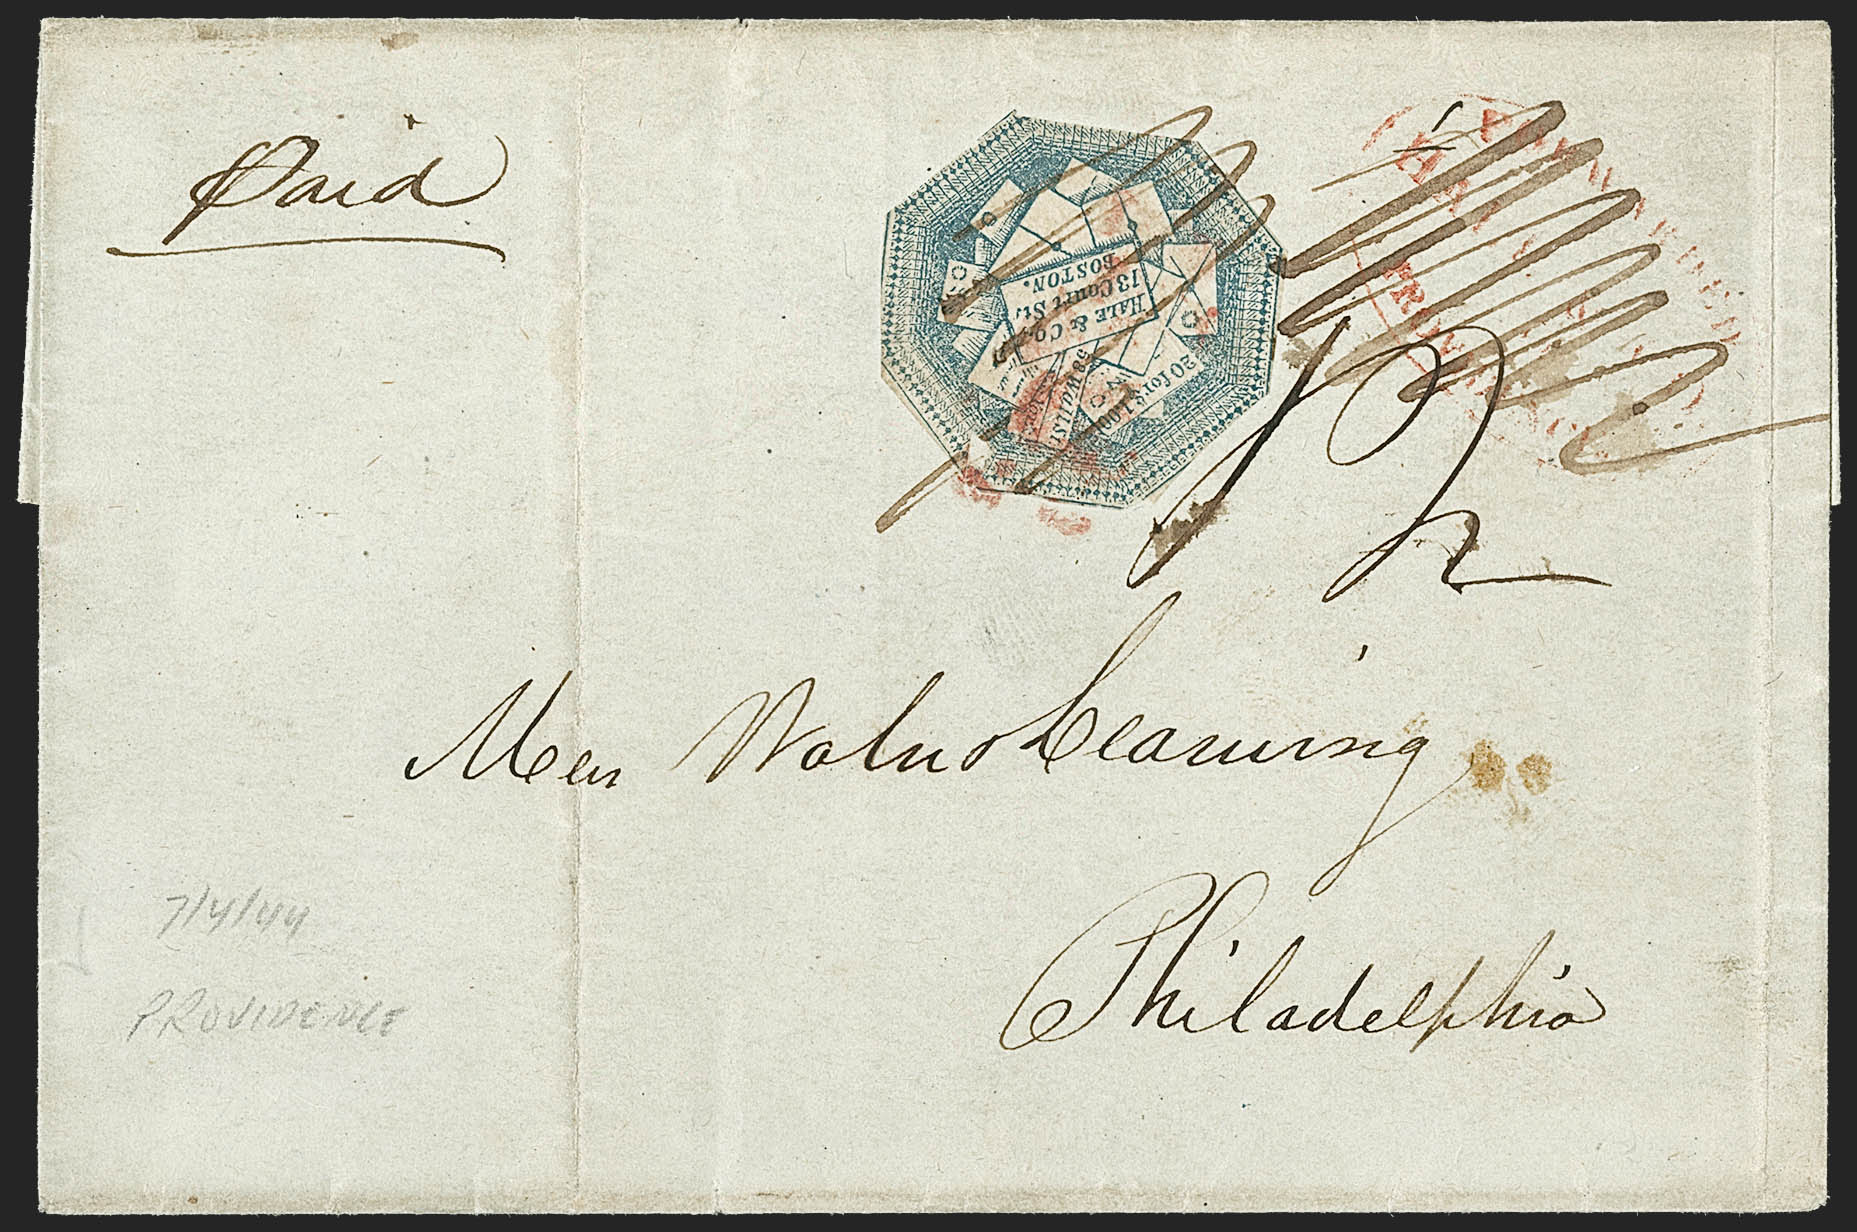 Paid
HALE & Co.
13 Court St,
BOSTON.
20 for $1.00
58 Wall St
HALE
FROM
12
Mess Waln & Leaming
Philadelphia
7/4/44
PROVIDENCE